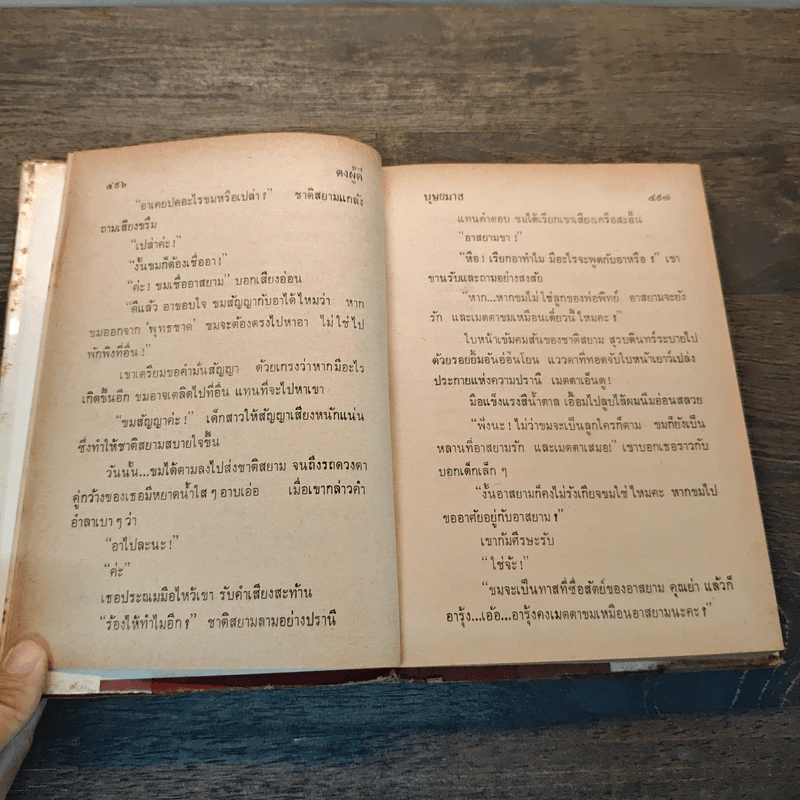 ๔๙๖ ดงผู้ดี
“อาเคยปดอะไรขมหรือเปล่า?” ชาติสยามแกล้ง
ถามเสียงขรึม
“เปล่าค่ะ!”
“งั้นขมก็ต้องเชื่ออา!”
“ค่ะ! ขมเชื่ออาสยาม” บอกเสียงอ่อน
“ดีแล้ว อาขอบใจ ขมสัญญากับอาได้ไหมว่า หาก
ขมออกจาก ‘พุทธชาด’ ขมจะต้องตรงไปหาอา ไม่ใช่ไป
พักพิงที่อื่น!”
เขาเตรียมขอคำมั่นสัญญา ด้วยเกรงว่าหากมีอะไร
เกิดขึ้นอีก ขมอาจเตลิดไปที่อื่น แทนที่จะไปหาเขา
“ขมสัญญาค่ะ!” เด็กสาวให้สัญญาเสียงหนักแน่น
ซึ่งทำให้ชาติสยามสบายใจขึ้น
วันนั้น...ขมได้ตามลงไปส่งชาติสยาม จนถึงรถดวงตา
คู่กว้างของเธอมีหยาดน้ำใส ๆ อาบเอ่อ เมื่อเขากล่าวคำ
อำลาเบา ๆ ว่า
“อาไปละนะ!”
“ค่ะ”
เธอประณมมือไหว้เขา รับคำเสียงสะท้าน
“ร้องไห้ทำไมอีก?” ชาติสยามถามอย่างปรานี
บุษยมาส ๔๙๗
แทนคำตอบ ขมได้เรียกเขาเสียงเครือสะอื้น
“อาสยามขา!”
“หือ! เรียกอาทำไม มีอะไรจะพูดกับอาหรือ?” เขา
ขานรับและถามอย่างสงสัย
“หาก...หากขมไม่ใช่ลูกของพ่อพิทย์ อาสยามจะยัง
รัก และเมตตาขมเหมือนเดี๋ยวนี้ไหมคะ?”
ใบหน้าเข้มคมสันของชาติสยาม สุรบดินทร์ระบายไป
ด้วยรอยยิ้มอันอ่อนโยน แววตาที่ทอดจับใบหน้าเยาว์เปล่ง
ประกายแห่งความปรานี เมตตาเอ็นดู!
มือแข็งแรงสีน้ำตาล เอื้อมไปลูบไล้ผมนิ่มอ่อนสลวย
“ฟังนะ! ไม่ว่าขมจะเป็นลูกใครก็ตาม ขมก็ยังเป็น
หลานที่อาสยามรัก และเมตตาเสมอ!” เขาบอกเธอราวกับ
บอกเด็กเล็ก ๆ
“งั้นอาสยามก็คงไม่รังเกียจขมใช่ไหมคะ หากขมไป
ขออาศัยอยู่กับอาสยาม?”
เขาก้มศีรษะรับ
“ใช่จ้ะ!”
“ขมจะเป็นทาสที่ซื่อสัตย์ของอาสยาม คุณย่า แล้วก็
อารุ้ง...เอ้อ...อารุ้งคงเมตตาขมเหมือนอาสยามนะคะ?”